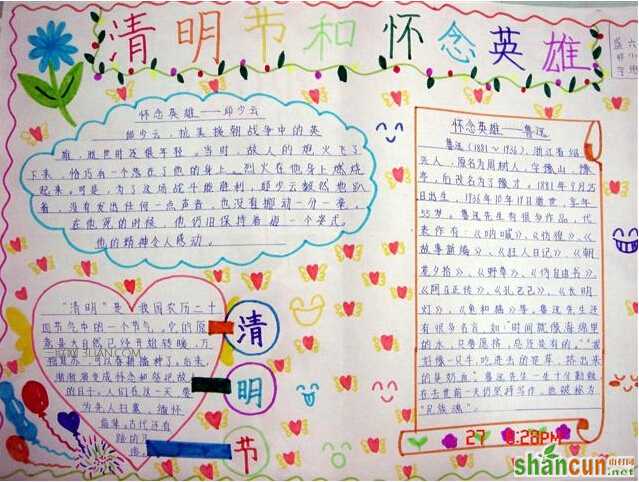 清明节和怀念英雄
怀念英雄——邱少云
邱少云，抗美援朝战争中的英
雄，牺牲时还很年轻。当时，敌人的炮火飞了
下来，恰巧有一个忽在了他的身上。烈火在他身上燃烧
起来。可是，为了这场战斗能胜利，邱少云毅然地趴
着，没有发出任何一点声音，也没有挪动一分一豪。
在他死的时候，他仍旧保持着一个姿式。
他的精神令人感动。
怀念英雄——鲁迅
鲁迅（1881～1936），浙江省绍
兴人，原名为周树人，字豫山，豫
亭，后改名为予豫才，1881年9月25
日出生，1936年10月19日逝世，享年
55岁。鲁迅先生有很多作品，代
表作有：《呐喊》、《彷徨》、《
故事新编》、《狂人日记》、《朝
花夕拾》、《野草》、《伪自由书》、
《阿Q正传》、《孔乙己》、《长明
灯》、《鱼和猫》等。鲁迅先生还
有很多名言，如：“时间就像海绵里的
水，只要愿挤，总还是有的。”“我
好像一只牛，吃进去的是草，挤出来
的是奶血。”鲁迅先生一生十分勤勉
在去世前一天仍坚持写作，也被称为
“民族魂”。
“清明”是我国农历二十
四节气中的一个节气。它的
意是大自然已经开始转暖，万
可以春耕播种了。后来，
渐渐演变成怀念和祭祀故
的日子。人们在这一天要
为亲人扫墓，缅怀
古代还有
踏
清
明
节
27 8:28PM
shancun
.net